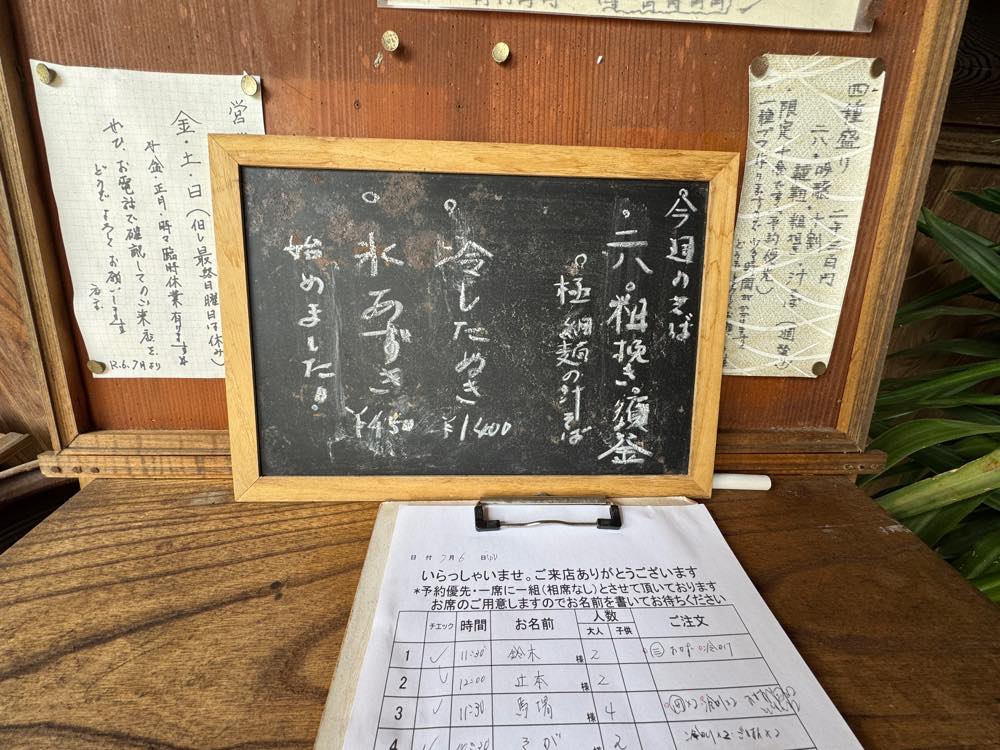 今週のそば
・二八・粗挽き・須釜
・極細麺の汁そば
・冷したぬき ¥1400
・氷あずき ¥450
始めました!
四種盛り
二千二百円
限定十食です。予約優先
営
金・土・日(但し最終日曜日は休み)
※金・正月・時々臨時休業有ります
ぜひ、お電話で確認してのご来店を、
どうぞよろしくお願いします
店主
R.6.7月より
日付 7月 6日
いらっしゃいませ。ご来店ありがとうございます
*予約優先・一席に一組(相席なし)とさせて頂いております
お席のご用意しますのでお名前を書いてお待ちください
チェック 時間 お名前 人数 大人 子供 ご注文
1 ✓ 11:30 鈴木 様 2
2 ✓ 12:00 辻本 様 2
3 ✓ 11:30 馬場 様 4
4 ✓ そが 様 2